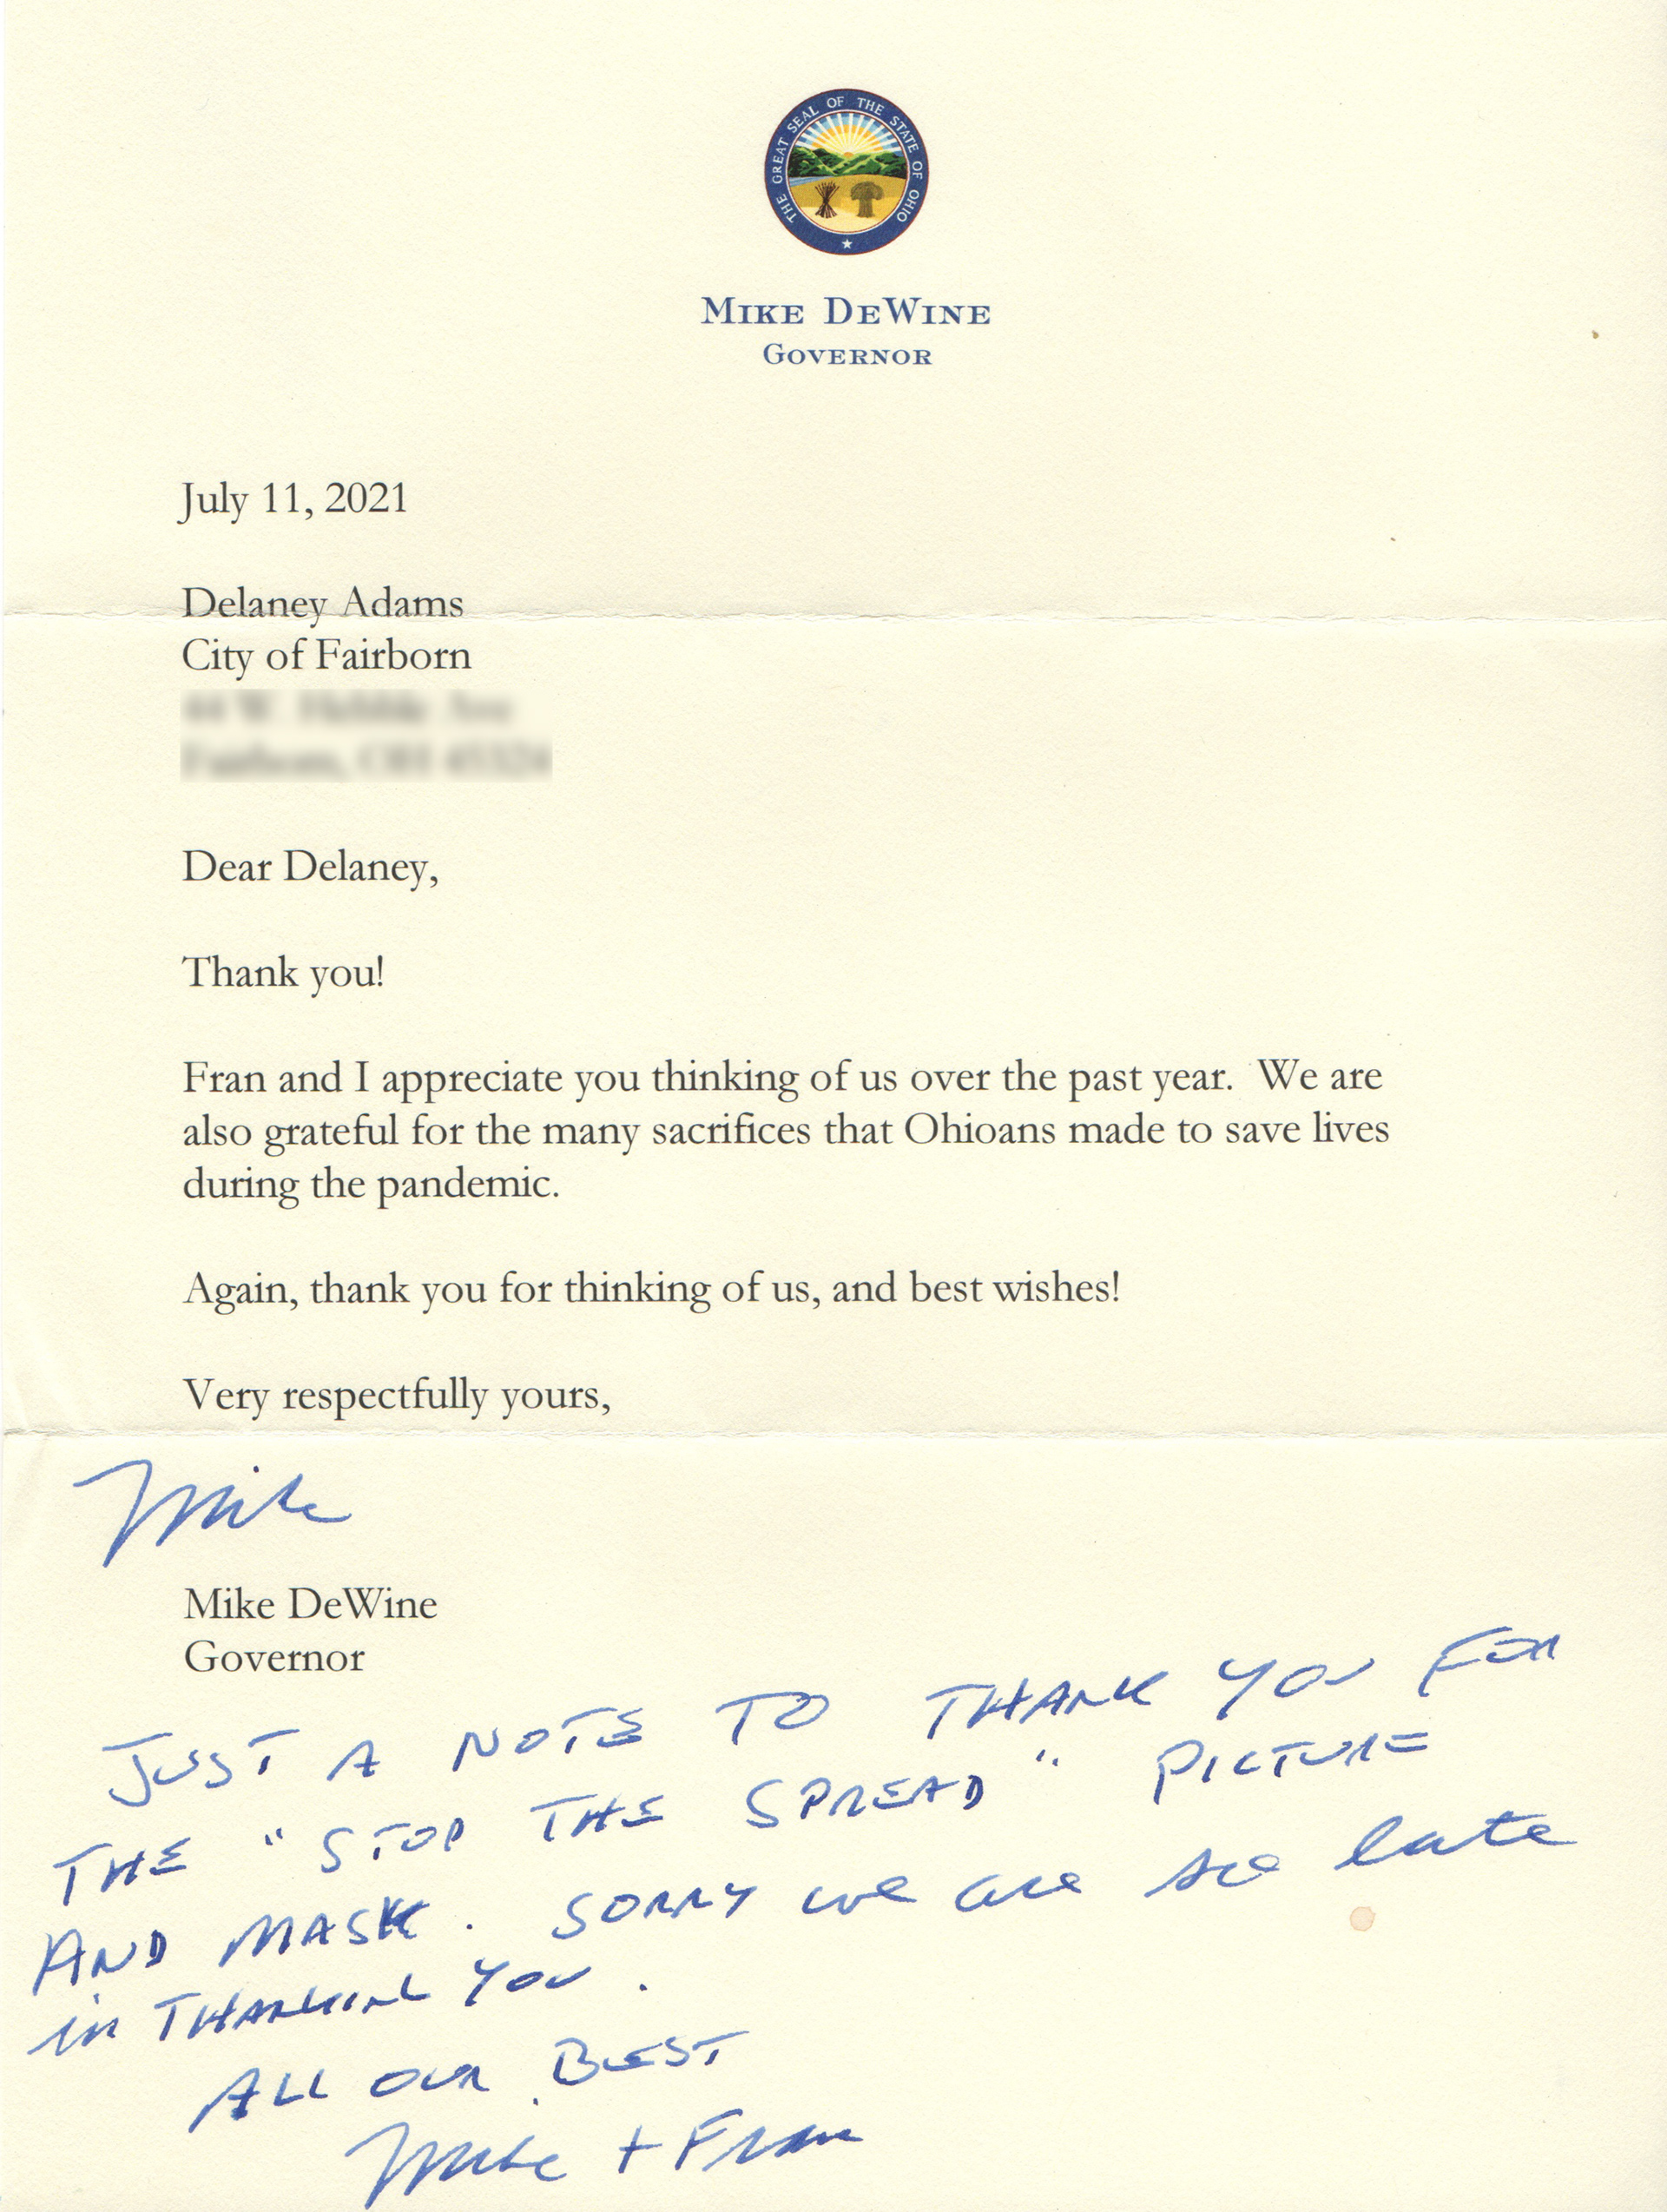 THE GREAT SEAL OF THE STATE OF OHIO
MIKE DEWINE
GOVERNOR
July 11, 2021
Delaney Adams
City of Fairborn
Dear Delaney,
Thank you!
Fran and I appreciate you thinking of us over the past year. We are
also grateful for the many sacrifices that Ohioans made to save lives
during the pandemic.
Again, thank you for thinking of us, and best wishes!
Very respectfully yours,
Mike
Mike DeWine
Governor
JUST A NOTE TO THANK YOU FOR
THE "STOP THE SPREAD" PICTURE
AND MASK. SORRY we are so late
in THANKING YOU.
ALL OUR BEST
Mike + Fran